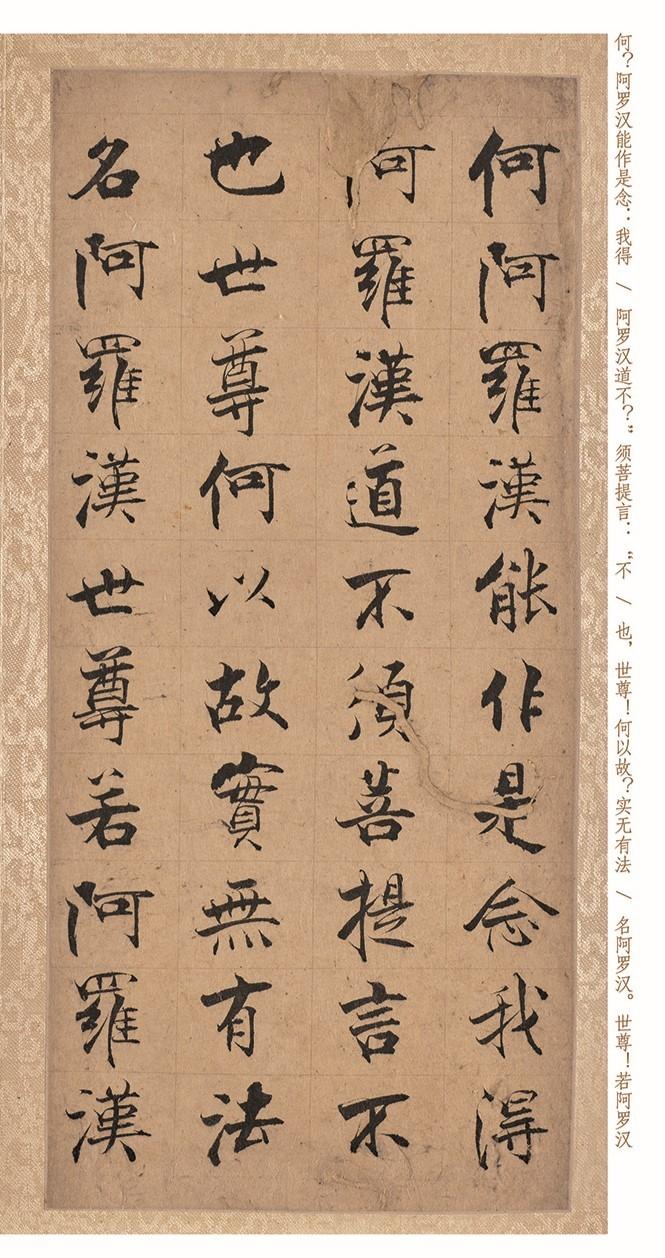 何？阿罗汉能作是念：我得 / 阿罗汉道不？”须菩提言：“不 / 也，世尊！何以故？实无有法 / 名阿罗汉。世尊！若阿罗汉
何阿羅漢能作是念我得
阿羅漢道不須菩提言不
也世尊何以故實無有法
名阿羅漢世尊若阿羅漢